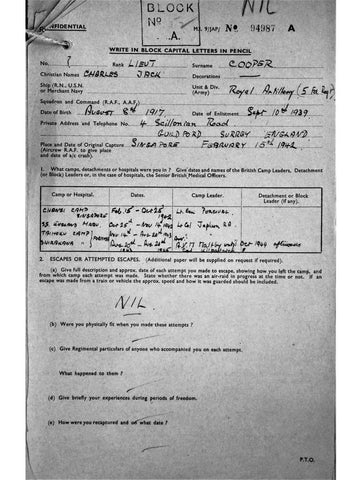 CONFIDENTIAL
BLOCK
NO
A.
NIL
M.I. 9/JAP/ No 94987 A
WRITE IN BLOCK CAPITAL LETTERS IN PENCIL
No. ? Rank LIEUT Surname COOPER
Christian Names CHARLES JACK Decorations
Ship (R.N., U.S.N. or Merchant Navy Unit & Div. (Army) Royal Artillery (5 Regt)
Squadron and Command (R.A.F., A.A.F.)
Date of Birth AUGUST 8th 1917 Date of Enlistment Sept 10th 1939
Private Address and Telephone No. 4 Scillonian Road
GUILDFORD SURREY ENGLAND
Place and Date of Original Capture SINGAPORE FEBRUARY 15th 1942
(Aircrew R.A.F. to give place and date of a/c crash).
1. What camps, detachments or hospitals were you in? Give dates and names of the British Camp Leaders, Detachment
(or Block) Leaders or, in the case of hospitals, the Senior British Medical Officers.
Camp or Hospital. Dates. Camp Leader. Detachment or Block Leader (if any).
CHANGI CAMP SINGAPORE Feb. 15th - Oct 25th 1942 Lt Gen Percival
S.S. MARU Oct 25th - Nov 14th 1942 Lt Col
CAMP Nov 14th - Aug 20th
Aug 20th - Aug 20th 1945 A.V.M. Maltby until Oct 1944
2. ESCAPES OR ATTEMPTED ESCAPES. (Additional paper will be supplied on request if required).
(a) Give full description and approx. date of each attempt you made to escape, showing how you left the camp, and
from which camp each attempt was made. State whether there was an air-raid in progress at the time or not. If an
escape was made from a train or vehicle the approx. speed and how it was guarded should be included.
NIL.
(b) Were you physically fit when you made these attempts?
(c) Give Regimental particulars of anyone who accompanied you on each attempt.
What happened to them?
(d) Give briefly your experiences during periods of freedom.
(e) How were you recaptured and on what date?
P.T.O.